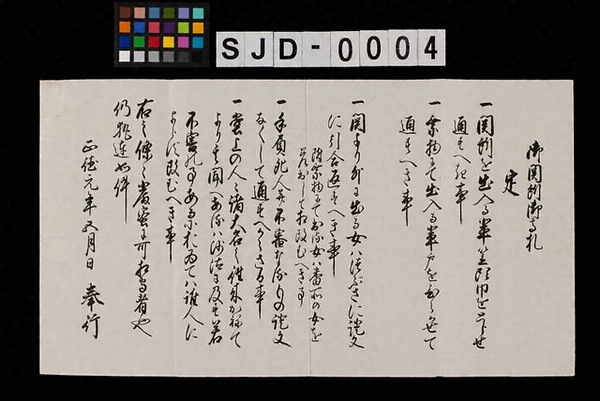 SJD-0004
御関所御高札
定
一関所を出入る輩笠頭巾をとらせ
通すへき事
一乗物にて出入る輩戸をひらかせて
通すへき事
一関より外に出る女ハつぶさに証文
に引合通すへき事
附乗物にて出る女ハ番所の女を
差出して相改むへき事
一手負死人并不審なるもの証文
なくして通すへからさる事
一堂上の人々諸大名之往来かねて
より其聞へあるハ沙汰に及ハす若
不審の事あるにおゐてハ誰人に
よらす改むへき事
右之條々厳密可相守者也
仍執達如件
正徳元年五月日　奉行